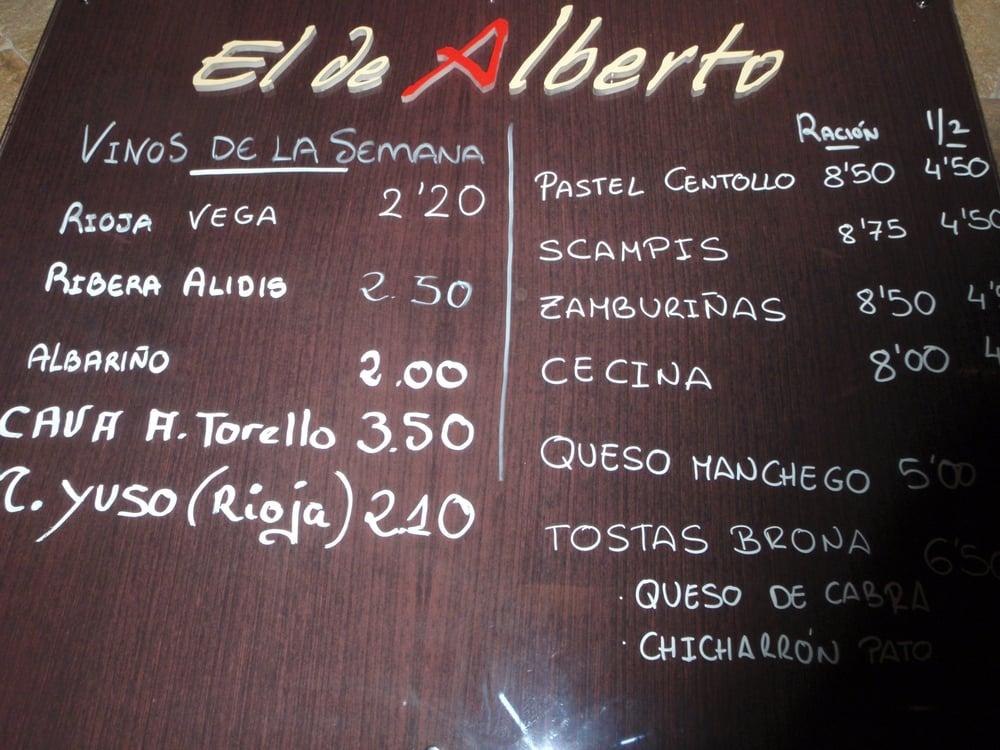 El de Alberto
VINOS DE LA SEMANA
RIOJA VEGA 2'20
RIBERA ALIDIS 2.50
ALBARIÑO 2.00
CAVA A. Torello 3.50
T. YUSO (Rioja) 2.10
RACIÓN 1/2
PASTEL CENTOLLO 8'50 4'50
SCAMPIS 8'75 4'50
ZAMBURIÑAS 8'50
CECINA 8'00
QUESO MANCHEGO 5'00
TOSTAS BRONA 6'50
· QUESO DE CABRA
· CHICHARRÓN PATO